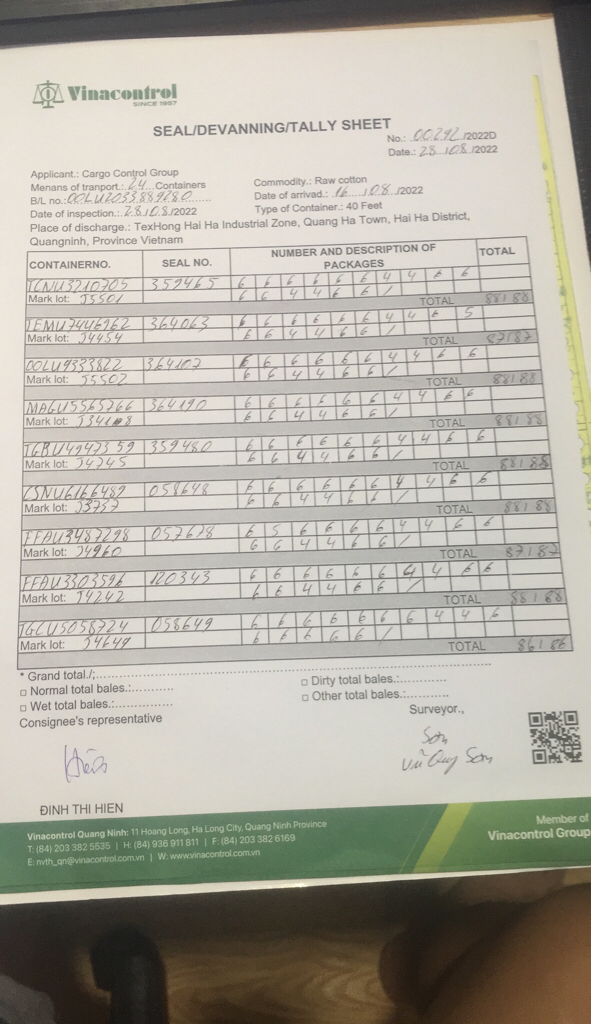 Vinacontrol
SINCE 1957
SEAL/DEVANNING/TALLY SHEET
No.: 00292/2022D
Date.: 28/08/2022
Applicant.: Cargo Control Group
Menans of tranport.: 24 Containers
Commodity.: Raw cotton
B/L no.: OOLU2033889280
Date of arrivad.: 16/08/2022
Date of inspection.: 28/08/2022
Type of Container.: 40 Feet
Place of discharge.: TexHong Hai Ha Industrial Zone, Quang Ha Town, Hai Ha District,
Quangninh, Province Vietnam
CONTAINERNO. SEAL NO. NUMBER AND DESCRIPTION OF PACKAGES TOTAL
TCNU3210705 359465 6 6 6 6 6 6 6 4 4 6 6
Mark lot: J5501 6 6 4 4 6 6 /
TOTAL 88/88
TEMU7446962 364063 6 6 6 6 6 6 6 4 4 6 5
Mark lot: J4454 6 6 4 4 6 6 /
TOTAL 87/87
OOLU9333822 364107 6 6 6 6 6 6 4 4 6 6
Mark lot: J5502 6 6 4 4 6 6 /
TOTAL 88/88
MAGU5565766 364190 6 6 6 6 6 6 4 4 6 6
Mark lot: 6 6 4 4 6 6 /
TOTAL 88/88
TGBU4947359 359480 6 6 6 6 6 6 4 4 6 6
Mark lot: J4245 6 6 4 4 6 6 /
TOTAL 88/88
CSNU6166489 058648 6 6 6 6 6 6 4 4 6 6
Mark lot: J3757 6 6 4 4 6 6 /
TOTAL 88/88
FFAU3487298 057628 6 5 6 6 6 6 4 4 6 6
Mark lot: J4960 6 6 4 4 6 6 /
TOTAL 87/87
FFAU3303596 120343 6 6 6 6 6 6 4 4 6 6
Mark lot: J4242 6 6 4 4 6 6 /
TOTAL 88/88
TGCU5058724 058649 6 6 6 6 6 6 6 4 4 6
Mark lot: J4649 6 6 6 6 6 /
TOTAL 86/86
* Grand total./:
□ Normal total bales.:
□ Dirty total bales.:
□ Wet total bales.:
□ Other total bales.:
Consignee's representative
Surveyor.,
Hiền
Sơn
Vũ Quý Sơn
ĐINH THI HIEN
Vinacontrol Quang Ninh: 11 Hoang Long, Ha Long City, Quang Ninh Province
T: (84) 203 382 5535 | H: (84) 936 911 811 | F: (84) 203 382 6169
E: nvth_qn@vinacontrol.com.vn | W: www.vinacontrol.com.vn
Member of
Vinacontrol Group